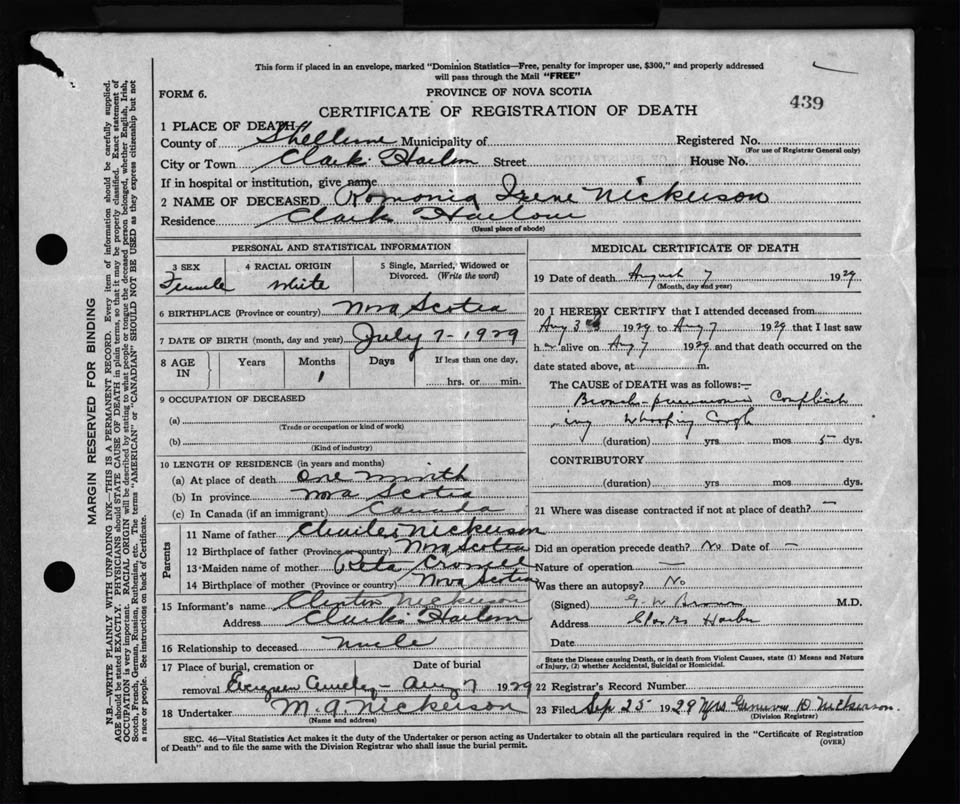 This form if placed in an envelope, marked "Dominion Statistics—Free, penalty for improper use, $300," and properly addressed
will pass through the Mail "FREE"
FORM 6.
PROVINCE OF NOVA SCOTIA
439
CERTIFICATE OF REGISTRATION OF DEATH
1 PLACE OF DEATH
County of Shelburne Municipality of Registered No.
(For use of Registrar General only)
City or Town Clarks Harbour Street House No.
If in hospital or institution, give name
2 NAME OF DECEASED Romonia Irene Nickerson
Residence Clarks Harbour
(Usual place of abode)
PERSONAL AND STATISTICAL INFORMATION
3 SEX 4 RACIAL ORIGIN 5 Single, Married, Widowed or Divorced. (Write the word)
Female White
6 BIRTHPLACE (Province or country) Nova Scotia
7 DATE OF BIRTH (month, day and year) July 7-1929
8 AGE IN Years Months Days If less than one day,
1 hrs. or min.
9 OCCUPATION OF DECEASED
(a)
(Trade or occupation or kind of work)
(b)
(Kind of industry)
10 LENGTH OF RESIDENCE (in years and months)
(a) At place of death One month
(b) In province Nova Scotia
(c) In Canada (if an immigrant) Canada
Parents
11 Name of father Charles Nickerson
12 Birthplace of father (Province or country) Nova Scotia
13 Maiden name of mother Reta Crowell
14 Birthplace of mother (Province or country) Nova Scotia
15 Informant's name Clinton Nickerson
Address Clarks Harbour
16 Relationship to deceased Uncle
17 Place of burial, cremation or Date of burial
removal Cemetery - Aug 7 1929
18 Undertaker M. A. Nickerson
(Name and address)
MEDICAL CERTIFICATE OF DEATH
19 Date of death August 7 1929
(Month, day and year)
20 I HEREBY CERTIFY that I attended deceased from
Aug 3 1929 to Aug 7 1929 that I last saw
her alive on Aug 7 1929 and that death occurred on the
date stated above, at m.
The CAUSE of DEATH was as follows:—
Broncho-pneumonia Complicat
ing Whooping Cough
(duration) yrs mos 5 dys.
CONTRIBUTORY
(duration) yrs mos dys.
21 Where was disease contracted if not at place of death? —
Did an operation precede death? No Date of —
Nature of operation —
Was there an autopsy? No
(Signed) G. W Brown M.D.
Address Clarks Harbor
Date
State the Disease causing Death, or in death from Violent Causes, state (1) Means and Nature
of Injury, (2) whether Accidental, Suicidal or Homicidal.
22 Registrar's Record Number
23 Filed Sep 25 1929 Mrs D. Nickerson.
(Division Registrar)
SEC. 46—Vital Statistics Act makes it the duty of the Undertaker or person acting as Undertaker to obtain all the particulars required in the "Certificate of Registration
of Death" and to file the same with the Division Registrar who shall issue the burial permit.
(OVER)
MARGIN RESERVED FOR BINDING
N.B.—WRITE PLAINLY WITH UNFADING INK—THIS IS A PERMANENT RECORD. Every item of information should be carefully supplied.
AGE should be stated EXACTLY. PHYSICIANS should STATE CAUSE OF DEATH in plain terms, so that it may be properly classified. Exact statement of
OCCUPATION is very important. RACIAL ORIGIN will be described by stating to what people or tongue the deceased person belonged, whether English, Irish,
Scotch, French, German, Russian, Ruthenian, etc. The terms "AMERICAN" or "CANADIAN" SHOULD NOT BE USED as they express citizenship but not
a race or people. See instructions on back of Certificate.